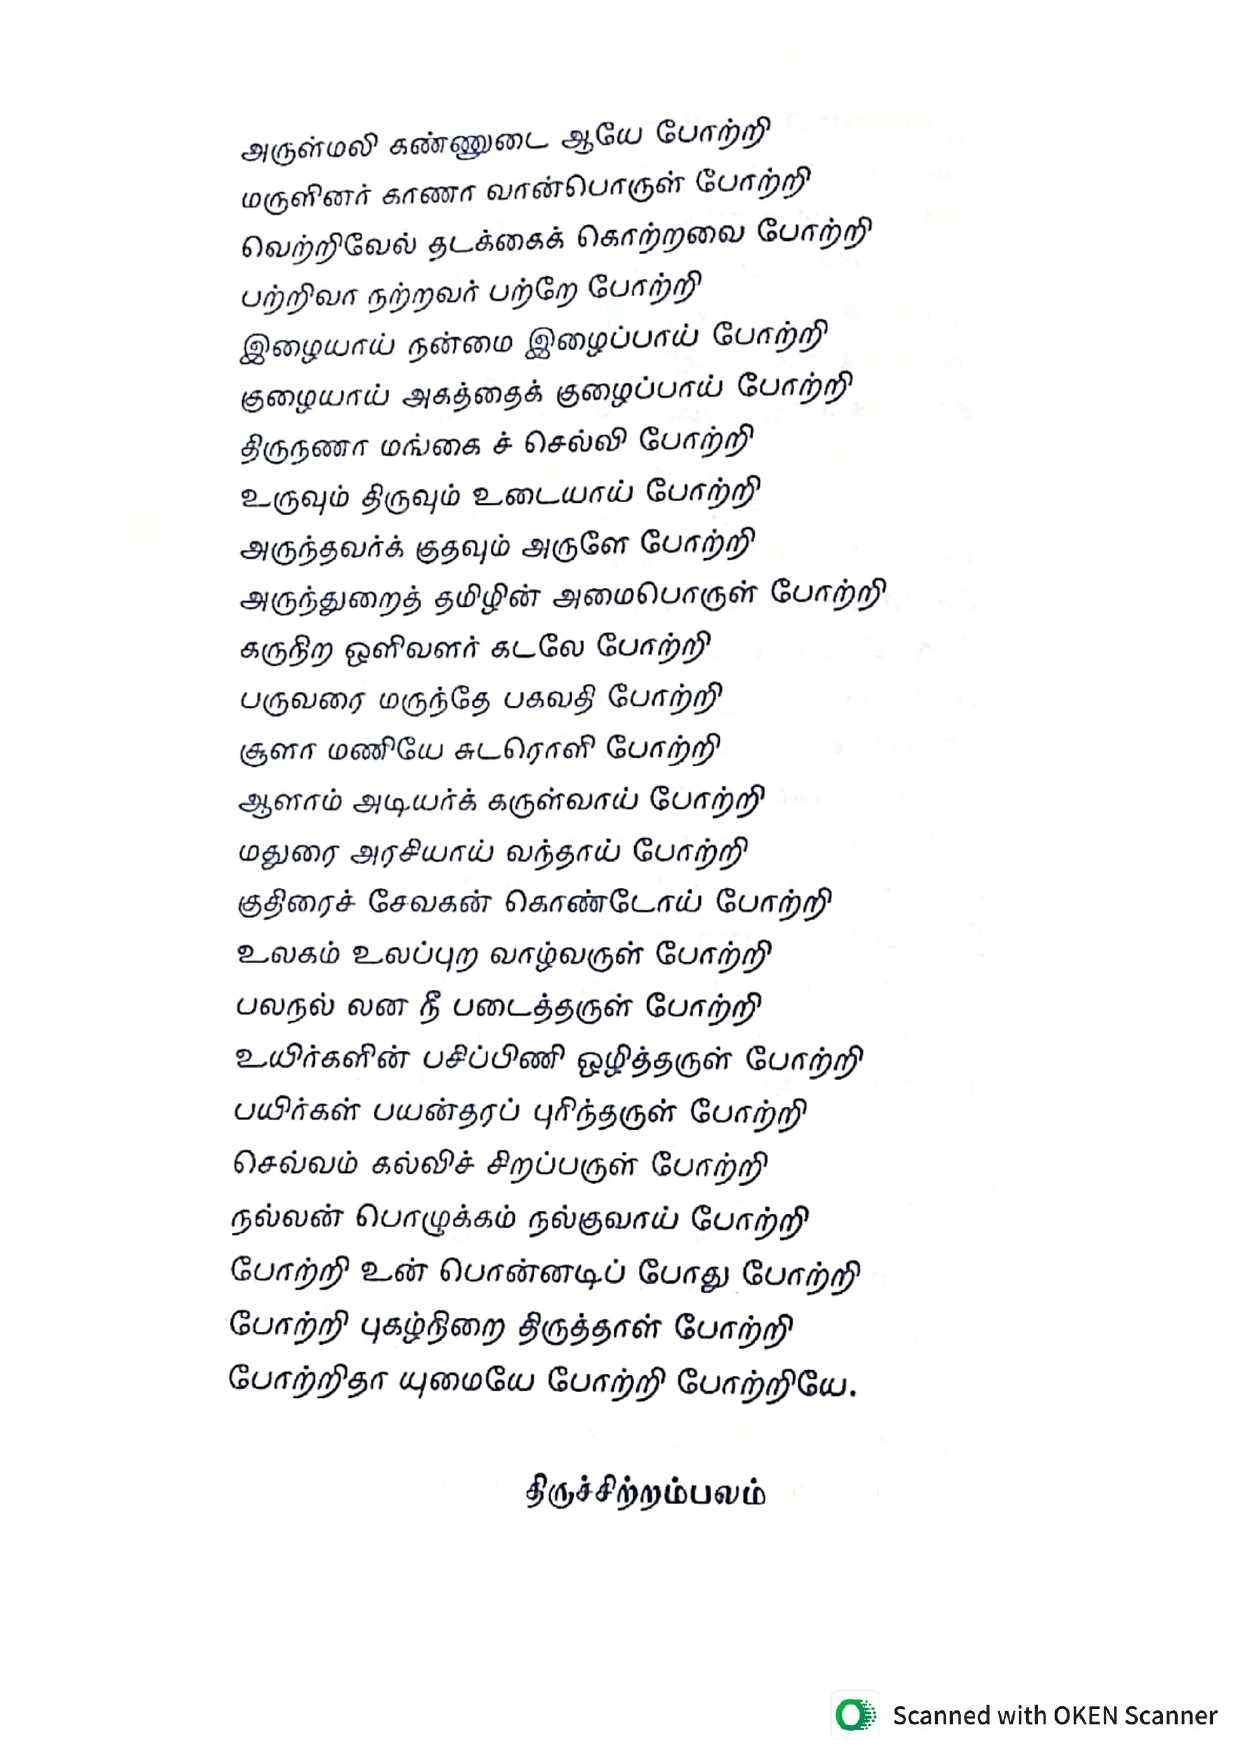 அருள்மலி கண்ணுடை ஆயே போற்றி
மருளினர் காணா வான்பொருள் போற்றி
வெற்றிவேல் தடக்கைக் கொற்றவை போற்றி
பற்றிவா நற்றவர் பற்றே போற்றி
இழையாய் நன்மை இழைப்பாய் போற்றி
குழையாய் அகத்தைக் குழைப்பாய் போற்றி
திருநணா மங்கை ச் செல்வி போற்றி
உருவும் திருவும் உடையாய் போற்றி
அருந்தவர்க் குதவும் அருளே போற்றி
அருந்துறைத் தமிழின் அமைபொருள் போற்றி
கருநிற ஒளிவளர் கடலே போற்றி
பருவரை மருந்தே பகவதி போற்றி
சூளா மணியே சுடரொளி போற்றி
ஆளாம் அடியர்க் கருள்வாய் போற்றி
மதுரை அரசியாய் வந்தாய் போற்றி
குதிரைச் சேவகன் கொண்டோய் போற்றி
உலகம் உலப்புற வாழ்வருள் போற்றி
பலநல் லன நீ படைத்தருள் போற்றி
உயிர்களின் பசிப்பிணி ஒழித்தருள் போற்றி
பயிர்கள் பயன்தரப் புரிந்தருள் போற்றி
செவ்வம் கல்விச் சிறப்பருள் போற்றி
நல்லன் பொழுக்கம் நல்குவாய் போற்றி
போற்றி உன் பொன்னடிப் போது போற்றி
போற்றி புகழ்நிறை திருத்தாள் போற்றி
போற்றிதா யுமையே போற்றி போற்றியே.
திருச்சிற்றம்பலம்
Scanned with OKEN Scanner